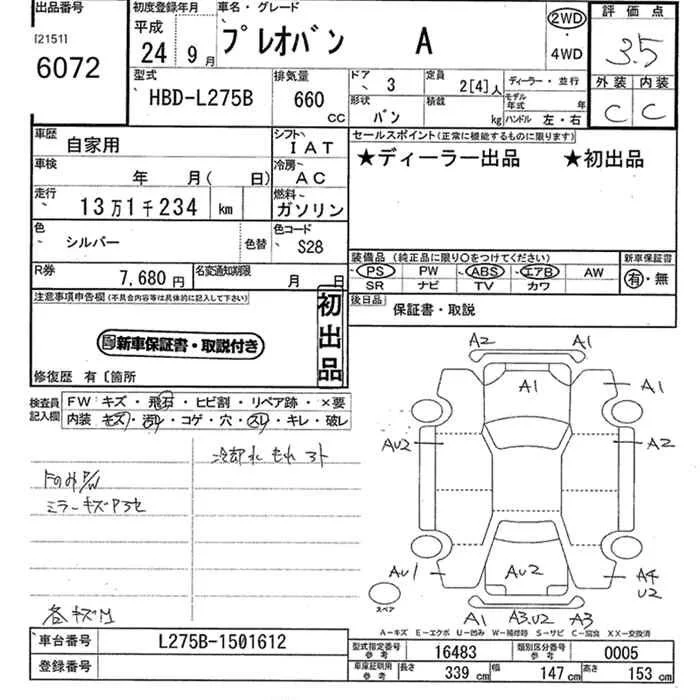 出品番号
[2151]
6072
初度登録年月
平成
24年 9月
車名・グレード
プレオバン A
2WD
・
4WD
評価点
3.5
外装 内装
C C
型式
HBD-L275B
排気量
660
CC
ドア 3
定員 2[4]人
ディーラー・並行
形状 バン
積載 kg
モデル年式 年
ハンドル 左・右
車歴 自家用
シフト IAT
車検 年 月( 日)
冷房 AC
走行 13万1千234 km
燃料 ガソリン
色 シルバー
色替
色コード S28
R券 7,680円
名変通知期限 月 日
セールスポイント(正常に機能するものに限ります)
★ディーラー出品 ★初出品
装備品 (純正品に限り○をつけてください)
PS PW ABS エアB AW
SR ナビ TV カワ
新車保証書
有・無
後日品
保証書・取説
注意事項申告欄(不具合内容等は具体的に記入して下さい)
初出品
新車保証書・取説付き
修復歴 有〔箇所
検査員記入欄
FW キズ・飛石・ヒビ割・リペア跡・×要
内装 キズ・汚レ・コゲ・穴・スレ・キレ・破レ
冷却水 もれ ヨト
ミラーキズ
各キズ
A2 A1
A1 A1
AU2 A2
AU1 AU2 A4
U2
スペア
A1 A3.U2 A3
A-キズ E-エクボ U-凹み W-補修時 S-サビ C-腐食 XX-交換済
車台番号 L275B-1501612
登録番号
型式指定番号 参考 16483
類別区分番号 参考 0005
車庫証明用 参考 長さ 339 cm 幅 147 cm 高さ 153 cm